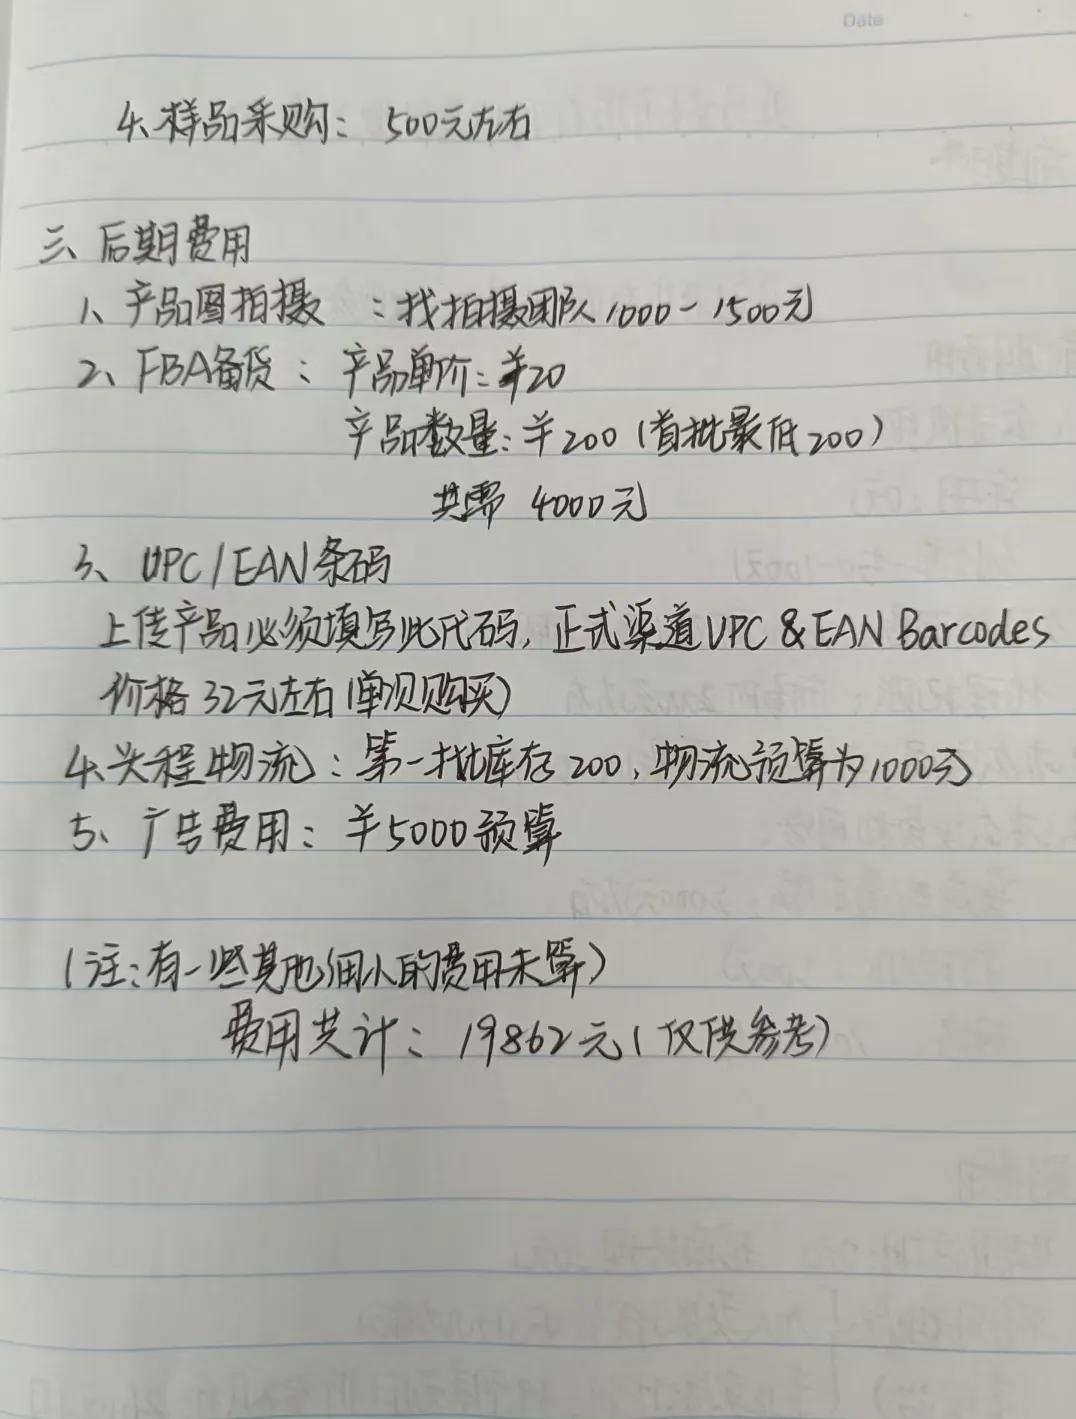 Date
4、样品采购：500元左右
三、后期费用
1、产品图拍摄：找拍摄团队1000-1500元
2、FBA备货：产品单价：￥20
产品数量：￥200（首批最低200）
共需 4000元
3、UPC/EAN条码
上传产品必须填写此代码，正式渠道UPC & EAN Barcodes
价格32元左右（单次购买）
4、头程物流：第一批库存200，物流预算为1000元
5、广告费用：￥5000预算
（注：有一些其他细小的费用未算）
费用共计：19862元（仅供参考）